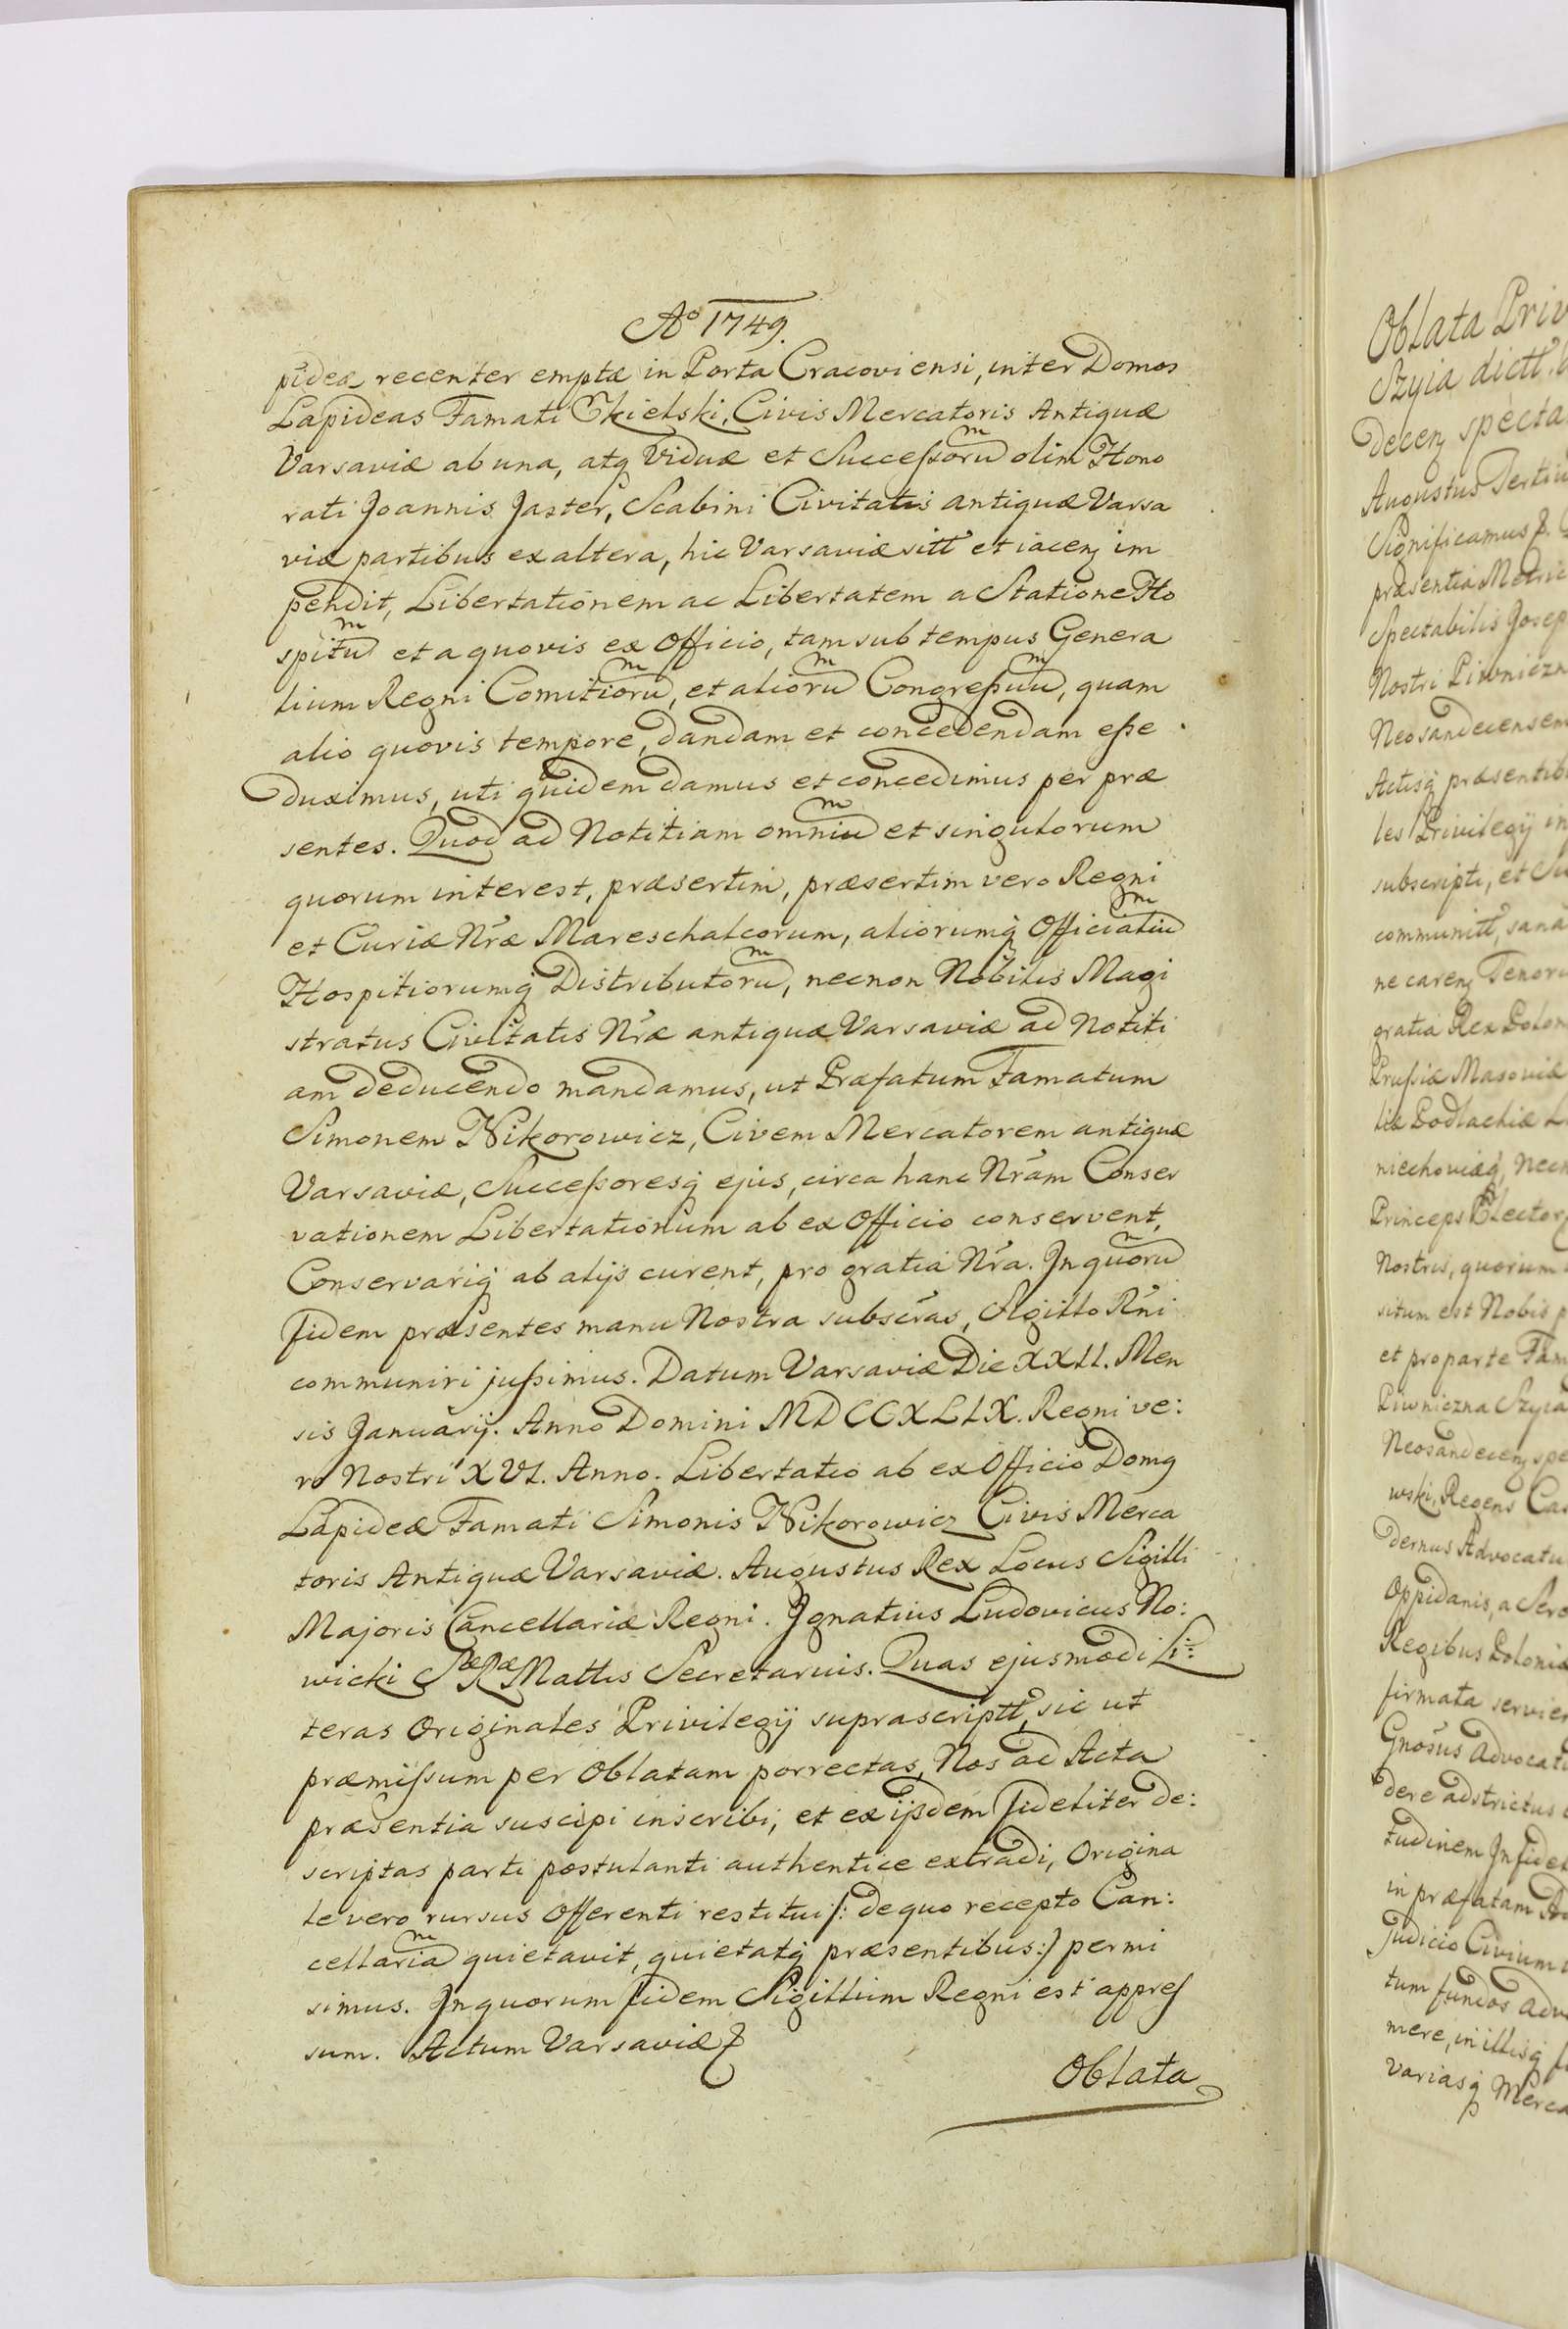 Aº 1749.
pideæ recenter emptæ in Porta Cracoviensi, inter Domos
Lapideas Famati Skielski, Civis Mercatoris Antiquæ
Varsaviæ ab una, atq Viduæ et Successorũ olim Hono
rati Joannis Jaster, Scabini Civitatis antiquæ Varsa
viæ partibus ex altera, hic Varsaviæ sitt et iacen im
pendit, Libertationem ac Libertatem a Statione Ho
spitũ et a quovis ex Officio, tam sub tempus Genera
lium Regni Comitiorũ, et aliorũ Congressuũ, quam
alio quovis tempore, dandam et concedendam esse
duximus, uti quidem damus et concedimus per præ
sentes. Quod ad Notitiam omniũ et singulorum
quorum interest, præsertim, præsertim vero Regni
et Curiæ Nræ Mareschalcorum, aliorumq Officialiũ
Hospitiorumq Distributorũ, necnon Nobilis Magi
stratus Civitatis Nræ antiquæ Varsaviæ ad Notiti
am deducendo mandamus, ut Præfatum Famatum
Simonem Nikorowicz, Civem Mercatorem antiquæ
Varsaviæ, Successoresq ejus, circa hanc Nram Conser
vationem Libertationum ab ex Officio conservent,
Conservariq ab alijs curent, pro gratia Nra. In quorũ
fidem præsentes manu Nostra subscras, Sigillo Rni
communiri jussimus. Datum Varsaviæ Die XXII. Men
sis Januarij. Anno Domini MDCCXLIX. Regni ve:
ro Nostri XVI. Anno. Libertatio ab ex Officio Domq
Lapideæ Famati Simonis Nikorowicz Civis Merca
toris Antiquæ Varsaviæ. Augustus Rex Locus Sigilli
Majoris Cancellariæ Regni. Ignatius Ludovicus No:
wicki Sæ Ræ Mattis Secretarius. Quas ejusmodi Li:
teras Originales Privilegij suprascriptt, sic ut
præmissum per Oblatam porrectas, Nos ad Acta
præsentia suscipi inscribi, et ex ijsdem fideliter de:
scriptas parti postulanti authentice extradi, Origina
le vero rursus Offerenti restitui /: de quo recepto Can:
cellariã quietavit, quietatq præsentibus :/ permi
simus. In quorum fidem Sigillum Regni est appres
sum. Actum Varsaviæ
Oblata
Oblata Priv
Szyia dictt
Decen specta
Augustus Tertiu
Significamus
præsentia Metric
Spectabilis Josep
Nostri Piwniczn
Neosandecensem
Actisq præsentib
les Privilegij in
subscripti, et Su
communitt, sana
ne caren Tenori
gratia Rex Polon
Prussiæ Masoviæ
liæ Podlachiæ L
niechoviæq, Necn
Princeps Elector
Nostris, quorum
situm est Nobis p
et pro parte Fam
Piwniczna Szyia
Neosandecen spe
wski, Regens Cas
dernus Advocatu
Oppidanis, a Sere
Regibus Poloniæ
firmata servier
Gnosus Advocatu
dere adstrictus
tudinem In fidel
in præfatam Ad
Judicio Civium
tum fundos adv
mere, in illisq
variasq Merca